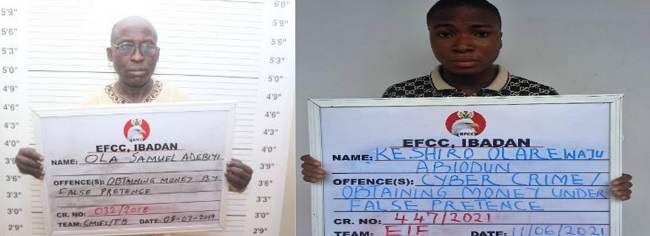 5'9"
5'6"
5'3"
5'0"
4'9"
4'6"
4'3"
EFCC, IBADAN
NAME: OLA SAMUEL ADEBIYI
OFFENCE(S): OBTAINING MONEY BY
FALSE PRETENCE
CR. NO: 032/2018
DATE: 08-03-2019
6'0"
5'9"
5'6"
5'3"
5'0"
4'9"
4'6"
4'3"
4'0"
3'9"
3'6"
3'3"
3'0"
2'9"
EFCC
EFCC, IBADAN
NAME: KESHIRO OLAREWAJU
ABIODUN
OFFENCE(S): CYBER CRIME/
OBTAINING MONEY UNDER
FALSE PRETENCE
CR. NO: 447/2021
TEAM: EIF DATE: 11/06/2021